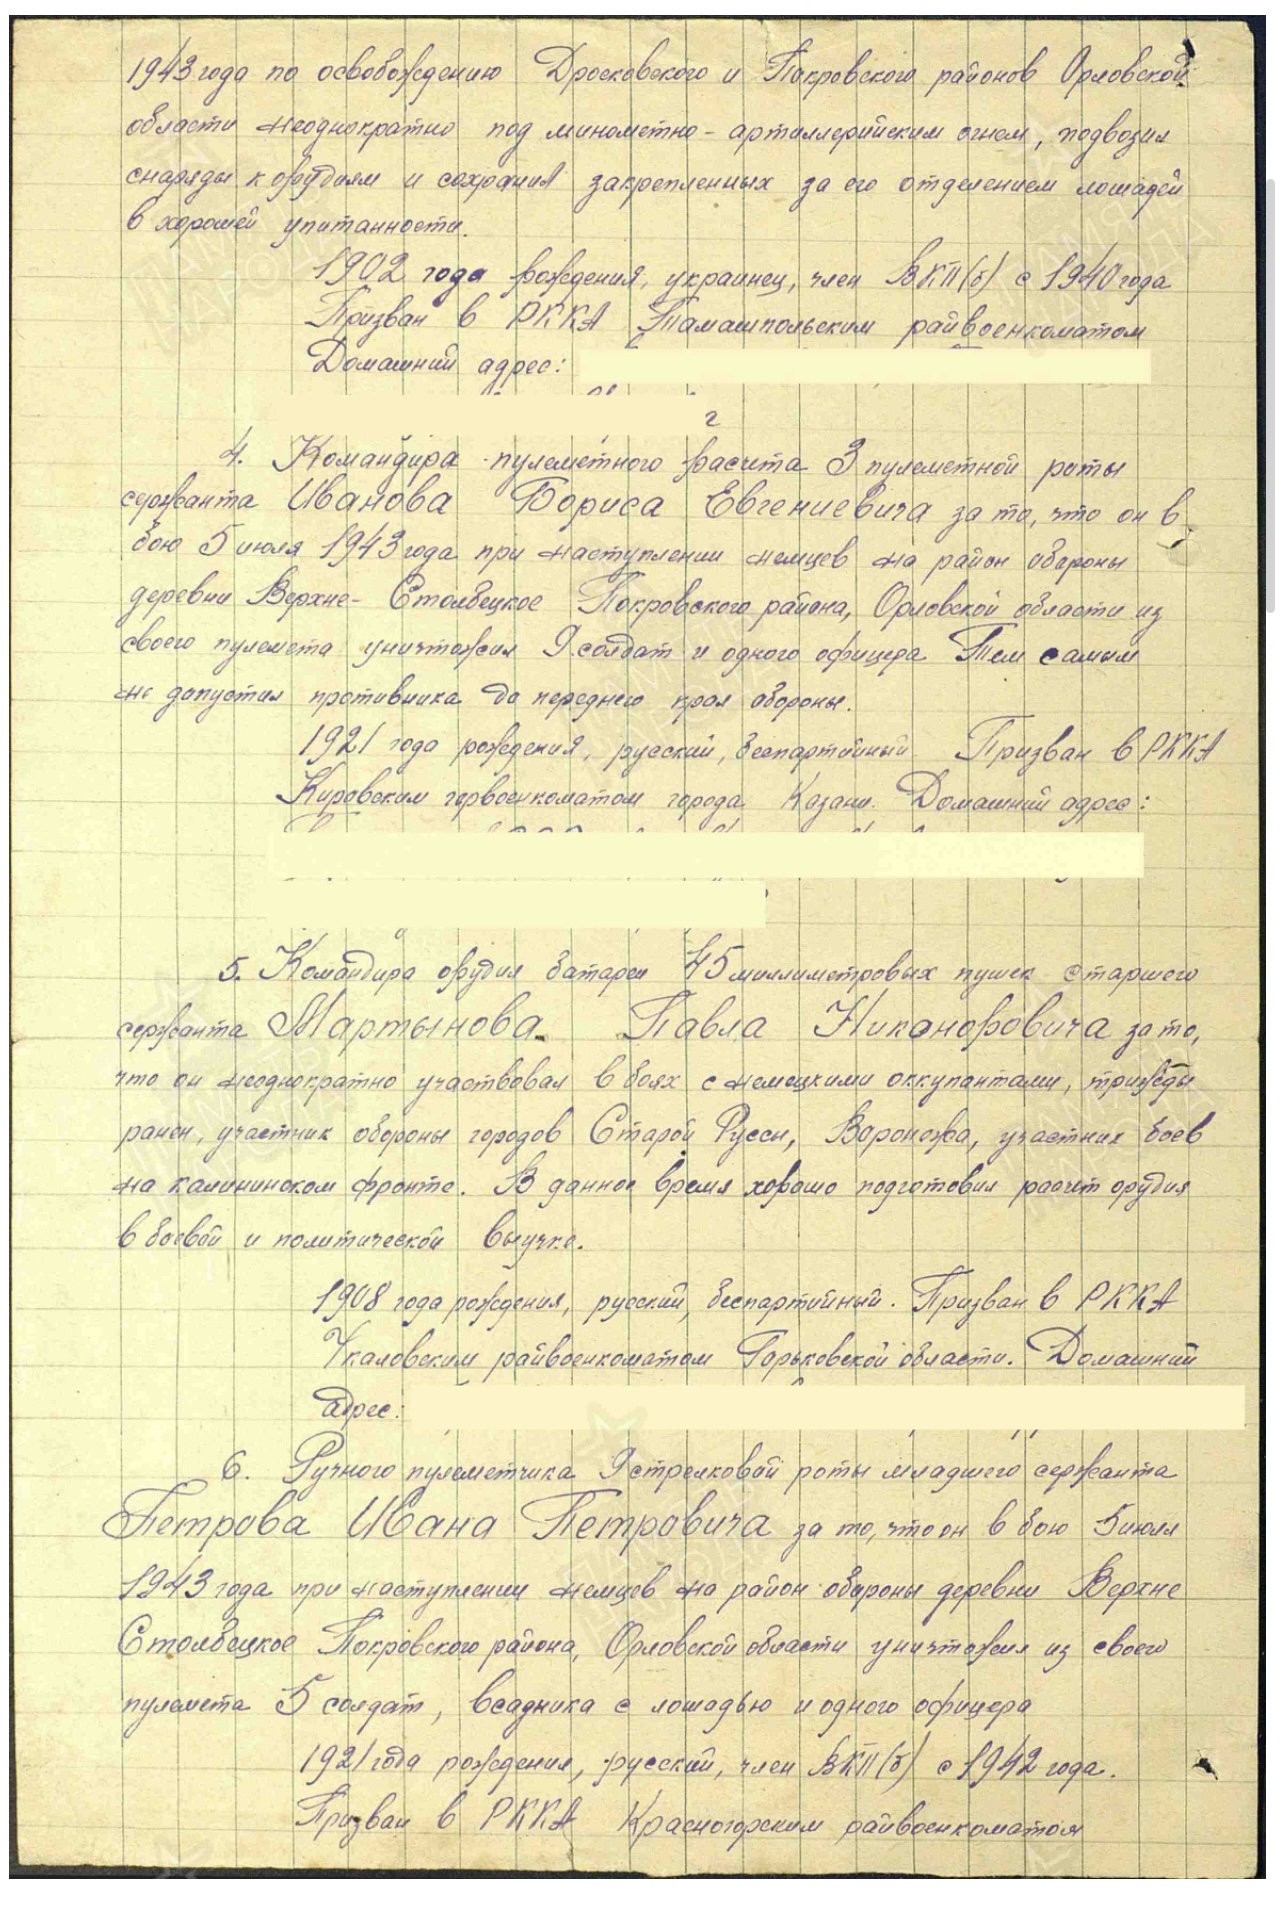 1943 года по освобождению Дросковского и Покровского районов Орловской
области неоднократно под минометно-артиллерийским огнем, подвозил
снаряды к орудиям и сохранил закрепленных за его отделением лошадей
в хорошей упитанности.
1902 года рождения, украинец, член ВКП(б) с 1940 года
Призван в РККА Тамашпольским райвоенкоматом
Домашний адрес:
4. Командира пулеметного расчета 3 пулеметной роты
сержанта Иванова Бориса Евгениевича за то, что он в
бою 5 июля 1943 года при наступлении немцев на район обороны
деревни Верхне-Столбецкое Покровского района, Орловской области из
своего пулемета уничтожил 9 солдат и одного офицера Тем самым
не допустил противника до переднего края обороны.
1921 года рождения, русский, беспартийный Призван в РККА
Кировским горвоенкоматом города Казани. Домашний адрес:
5. Командира орудия батареи 45 миллиметровых пушек старшего
сержанта Мартынова Павла Никаноровича за то,
что он неоднократно участвовал в боях с немецкими оккупантами, трижды
ранен, участник обороны городов Старой Руссы, Воронежа, участник боев
на калининском фронте. В данное время хорошо подготовил расчет орудия
в боевой и политической выучке.
1908 года рождения, русский, беспартийный. Призван в РККА
Чкаловским райвоенкоматом Горьковской области. Домашний
адрес:
6. Ручного пулеметчика 9 стрелковой роты младшего сержанта
Петрова Ивана Петровича за то, что он в бою 5 июля
1943 года при наступлении немцев на район обороны деревни Верхне
Столбецкое Покровского района, Орловской области уничтожил из своего
пулемета 5 солдат, всадника с лошадью и одного офицера
1921 года рождения, русский, член ВКП(б) с 1942 года.
Призван в РККА Красногорским райвоенкоматом